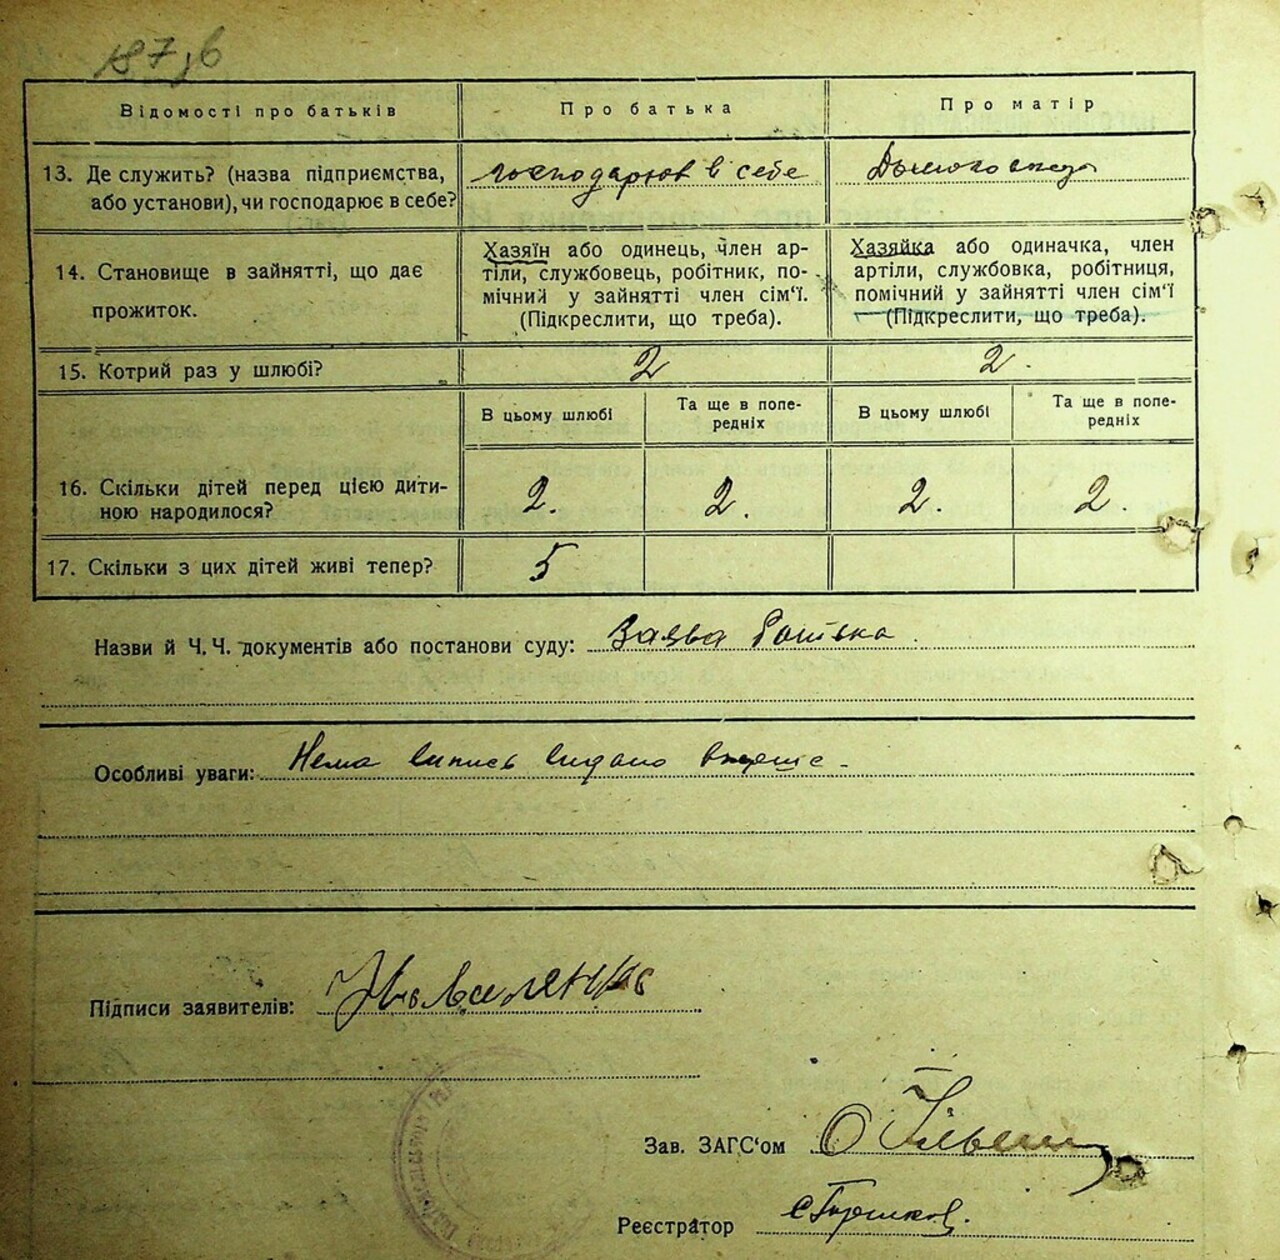 187,6
Відомості про батьків
Про батька
Про матір
13. Де служить? (назва підприємства, або установи), чи господарює в себе?
господарює в себе
14. Становище в зайнятті, що дає
прожиток.
Хазяїн або одинець, член ар-
тіли, службовець, робітник, по-
мічний у зайнятті член сім‘ї.
(Підкреслити, що треба).
Хазяйка або одиначка, член
артіли, службовка, робітниця,
помічний у зайнятті член сім‘ї
(Підкреслити, що треба).
15. Котрий раз у шлюбі?
2
2.
В цьому шлюбі
Та ще в попе-
редніх
В цьому шлюбі
Та ще в попе-
редніх
16. Скільки дітей перед цією дити-
ною народилося?
2.
2.
2.
2.
17. Скільки з цих дітей живі тепер?
5
Назви й Ч. Ч. документів або постанови суду: Заява батька.
Особливі уваги: Нема Випись видано вперше -
Підписи заявителів:
Зав. ЗАГС‘ом
Реєстратор